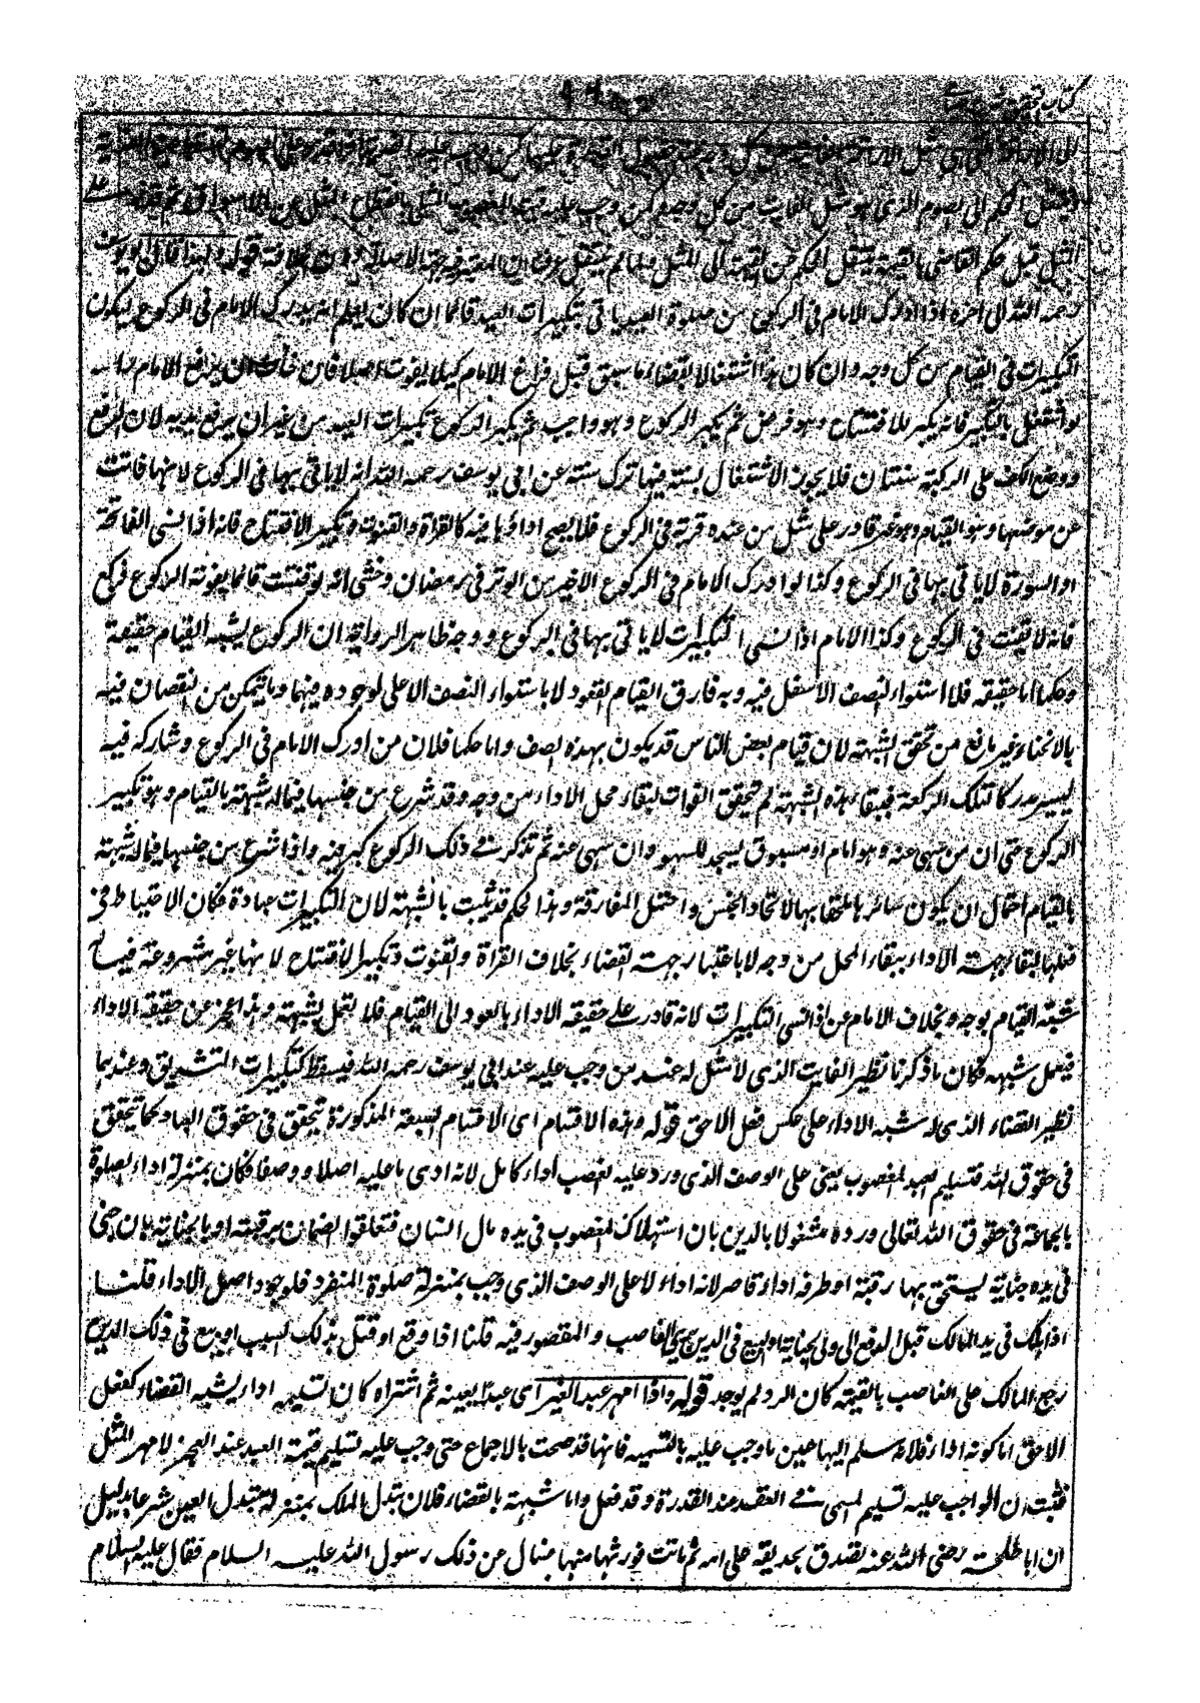 كتاب تحقيق شرح
الحكم الى الصوم الذي هو مثل الفايت من كل وجه كمن وجب عليه قيمة المغصوب المثلي بانقطاع المثل عن الاسواق ثم
المثل قبل حكم القاضي بالقيمة ينتقل الحكم من القيمة الى المثل ولما لم ينتقل عرف ان المعتبر فيه جهة الاصالة دون قوله ولهذا قال ابو يوسف
رحمه الله الى اخره اذا ادرك الامام في الركوع من صلوة العيد ياتي بتكبيرات العيد قائما ان كان يعلم انه يدرك الامام في الركوع ليكون
التكبيرات في القيام من كل وجه وان كان هذا اشتغالا بقضاء ما سبق قبل فراغ الامام كيلا يفوت اصلا فان خاف ان يرفع الامام راسه
لو اشتغل بالتكبير فانه يكبر للافتتاح وهو فرض ثم يكبر للركوع وهو واجب ثم يكبر في الركوع تكبيرات العيد من غير ان يرفع يديه لان الرفع
ووضع الكف على الركبة سنتان فلا يجوز الاشتغال بسنة فيها ترك سنة عن ابي يوسف رحمه الله انه لا ياتي بها في الركوع لانها فاتت
عن موضعها وهو القيام وهو غير قادر على مثل من عنده قربة في الركوع فلا يصح اداؤها فيه كالقراة والقنوت وتكبير الافتتاح فانه اذا نسي الفاتحة
او السورة لا ياتي بها في الركوع وكذا لو ادرك الامام في الركوع الاخير من الوتر في رمضان وخشي انه لو قنت قائما يفوته الركوع فركع
فانه لا يقنت في الركوع وكذا الامام اذا نسي التكبيرات لا ياتي بها في الركوع ووجه ظاهر الرواية ان الركوع يشبه القيام حقيقة
وحكما اما حقيقة فلاستواء النصف الاسفل فيه وبه فارق القيام القعود لا باستواء النصف الاعلى لوجوده فيهما وما يتمكن من النقصان فيه
بالانحناء غير مانع من تحقق الشبهة لان قيام بعض الناس قد يكون بهذه الصفة واما حكما فلان من ادرك الامام في الركوع وشاركه فيه
يصير مدركا لتلك الركعة فببقاء هذه الشبهة لم يتحقق الفوات لبقاء محل الاداء من وجه وقد شرع من جنسها فيما له شبهة بالقيام وهو تكبير
الركوع حتى ان من سهى عنه وهو امام او مسبوق يسجد للسهو وان سهى عنه ثم تذكر في ذلك الركوع كبر فيه واذا شرع من جنسها فيما له شبهة
بالقيام احتمل ان يكون سائرها ملحقا بها لاتحاد الجنس واحتمل المفارقة وهذا الحكم قد يثبت بالشبهة لان التكبيرات عبادة فكان الاحتياط في
فعلها لبقاء جهة الاداء ببقاء المحل من وجه لا باعتبار جهة القضاء بخلاف القراة والقنوت وتكبير الافتتاح لانها غير مشروعة فيما له
شبهة القيام بوجه وبخلاف الامام اذا نسي التكبيرات لانه قادر على حقيقة الاداء بالعود الى القيام فلا يعمل بشبهة وهذا عجز عن حقيقة الاداء
فيعمل بشبهه فكان ما ذكرنا نظير الفايت الذي لا مثل له عند من وجب عليه عند ابي يوسف رحمه الله فيسقط كتكبيرات التشريق وعندهما
نظير القضاء الذي له شبه الاداء على عكس فعل اللاحق قوله وهذه الاقسام اى الاقسام السبعة المذكورة تتحقق في حقوق العباد كما تتحقق
في حقوق الله فتسليم العبد المغصوب يعني على الوصف الذي ورد عليه الغصب اداء كامل لانه ادى ما عليه اصلا ووصفا فكان بمنزلة اداء الصلوة
بالجماعة في حقوق الله تعالى ورده مشغولا بالدين بان استهلاك المغصوب في يده مال انسان فتعلق الضمان برقبته او بالجناية بان جنى
في يده جناية يستحق بها رقبته او طرفه اداء قاصر لانه اداه لا على الوصف الذي وجب بمنزلة صلوة المنفرد فلوجود اصل الاداء قلنا
اذا هلك في يد المالك قبل الدفع الى ولي الجناية او البيع في الدين يبرئ الغاصب والقصور فيه قلنا اذا وقع او قتل بذلك السبب او بيع في ذلك الدين
رجع المالك على الغاصب بالقيمة كان الرد لم يوجد قوله واذا امهر عبد الغير اى عبدا بعينه ثم اشتراه كان تسليمه اداء يشبه القضاء كفعل
اللاحق اما كونه اداء فلانه سلم اليها عين ما وجب عليه بالتسمية فانها قد صحت بالاجماع حتى وجب عليه تسليم قيمة العبد عند العجز لا مهر المثل
فثبت ان الواجب عليه تسليم المسمى في العقد عند القدرة وقد فعل واما شبهته بالقضاء فلان تبدل الملك بمنزلة تبدل العين شرعا بدليل
ان ابا طلحة رضي الله عنه تصدق بحديقة على امه ثم ماتت فورثها منها فسال عن ذلك رسول الله عليه السلام فقال عليه السلام